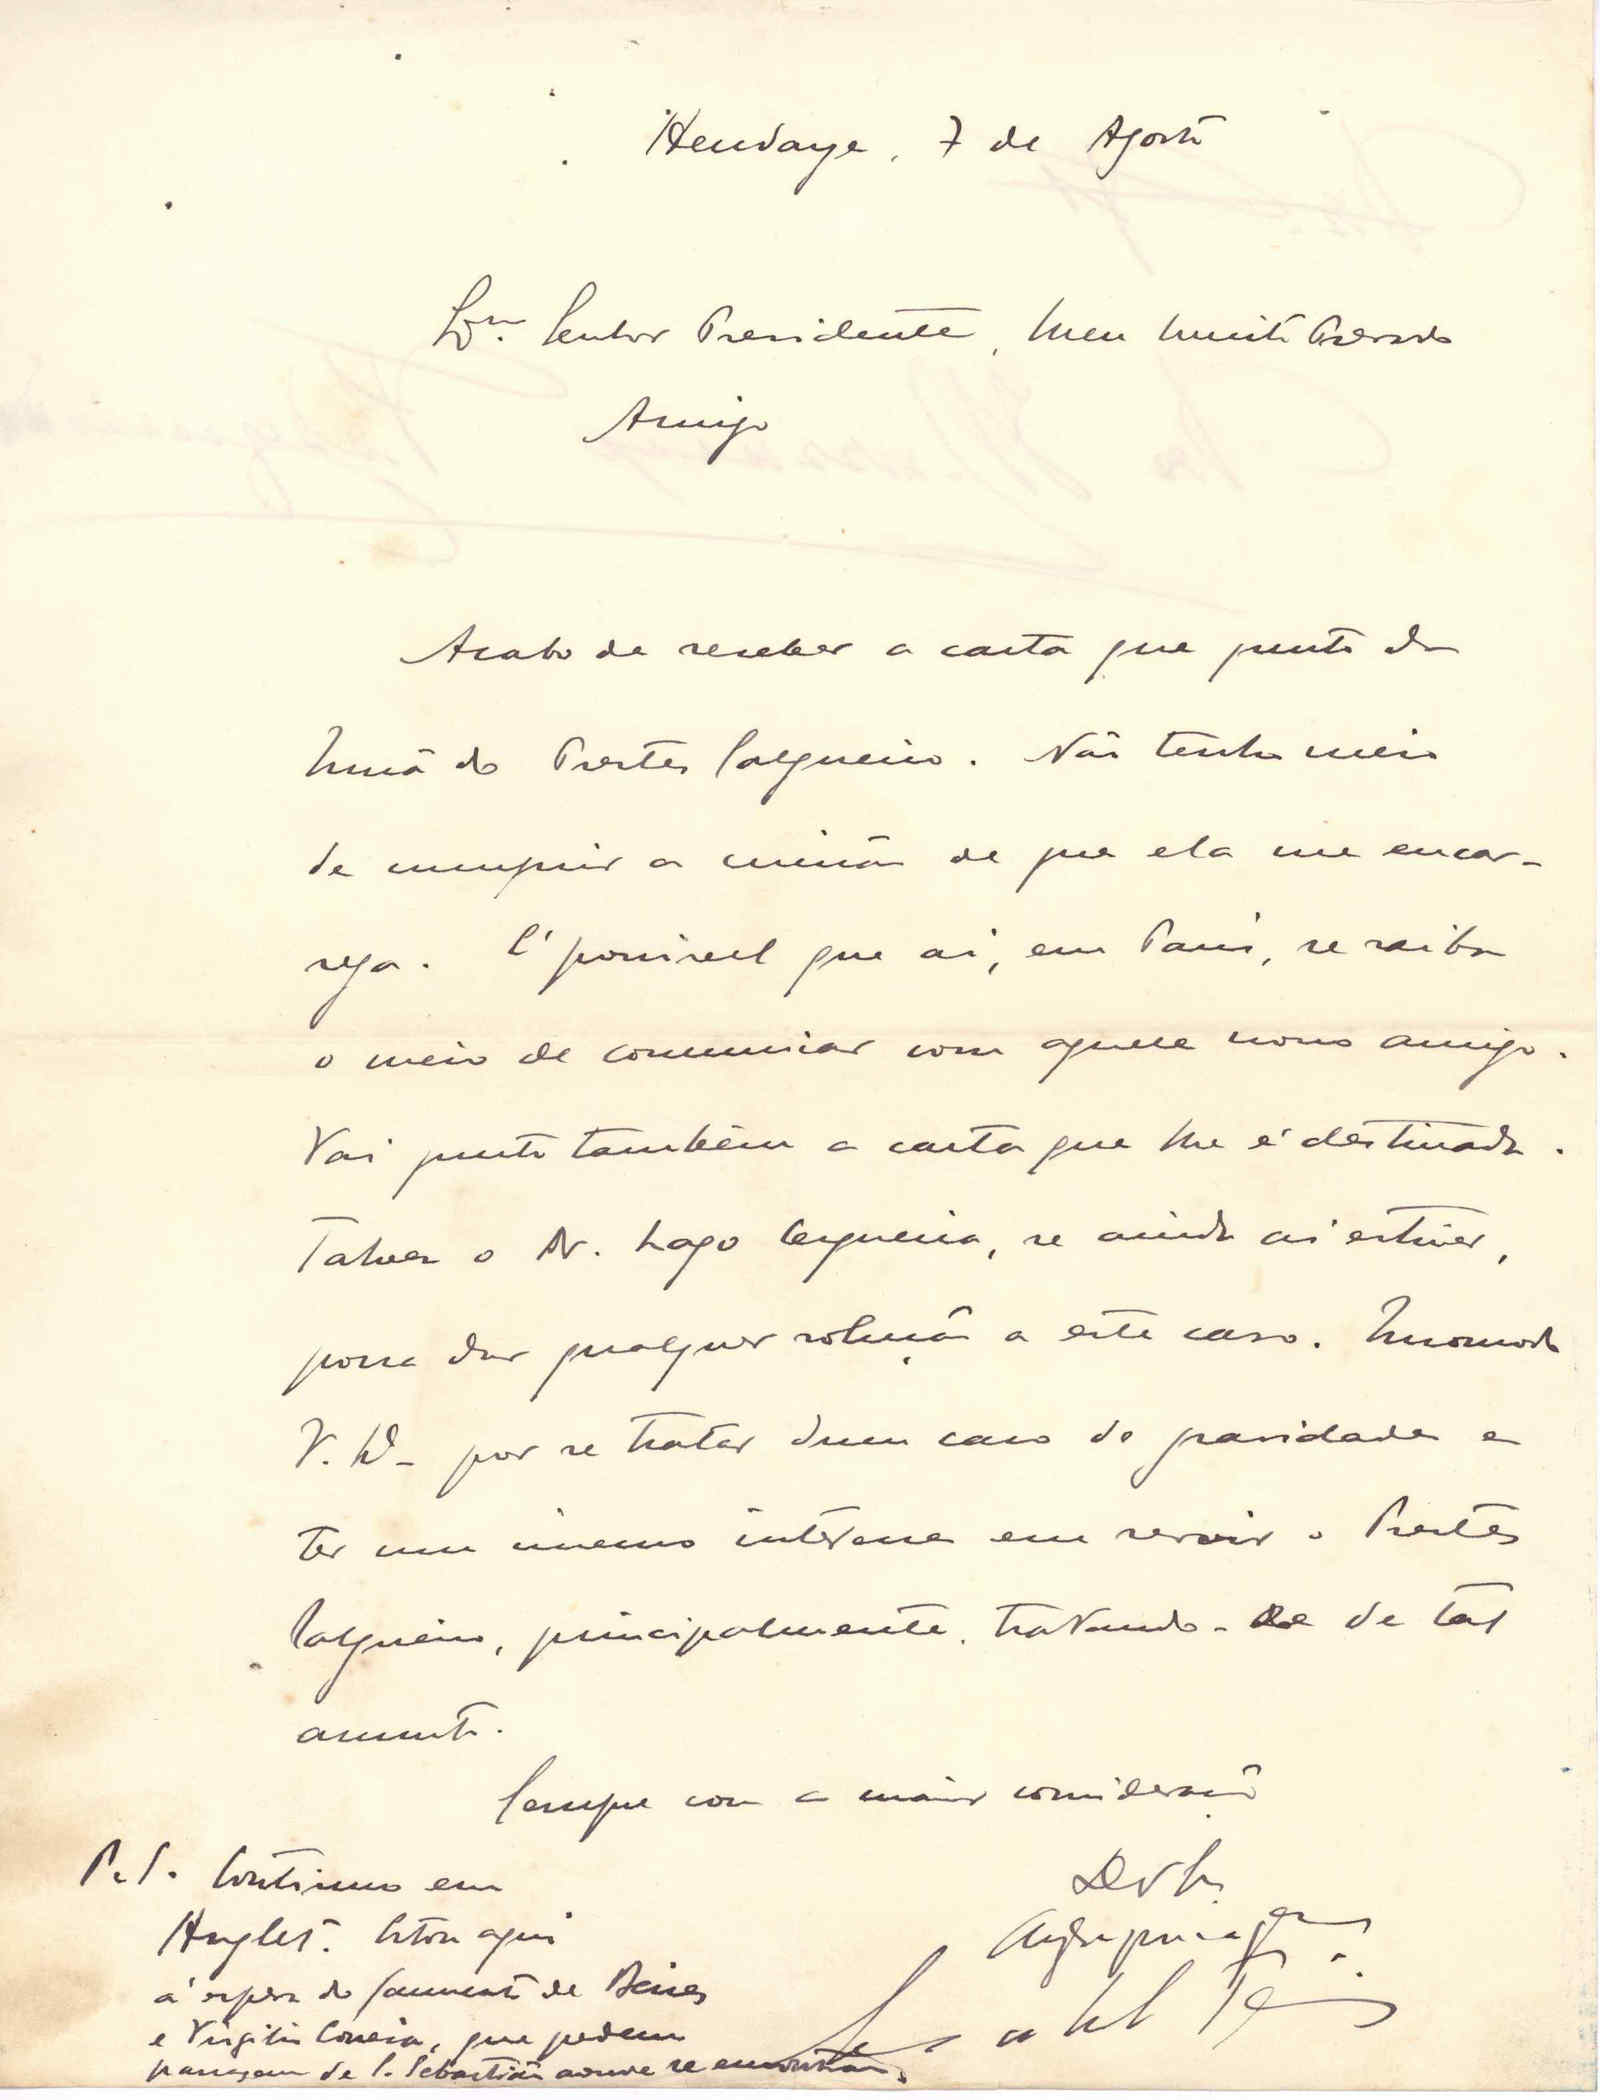 Hendaye, 7 de Agosto
Exmo. Senhor Presidente, Meu Muito Prezado
Amigo
Acabo de receber a carta que junto da
Irmã do Prestes Salgueiro. Não tenho meio
de cumprir a missão de que ela me encar-
rega. É possivel que ai, em Paris, se saiba
o meio de comunicar com aquele nosso amigo.
Vai junto também a carta que lhe é destinada.
Talvez o Dr. Lago Cerqueira, se ainda ai estiver,
possa dar qualquer solução a este caso. Incomodo
V. por se tratar dum caso de gravidade e
ter um imenso interesse em servir o Prestes
Salgueiro, principalmente, tratando-se de tal
assunto.
Sempre com a maior consideração
P.S. Continuo em
Anglet. Estou aqui
á espera do Sarmento de Beires
e Virgilio Correia, que pedem
passagem de S. Sebastián aonde se encontram.